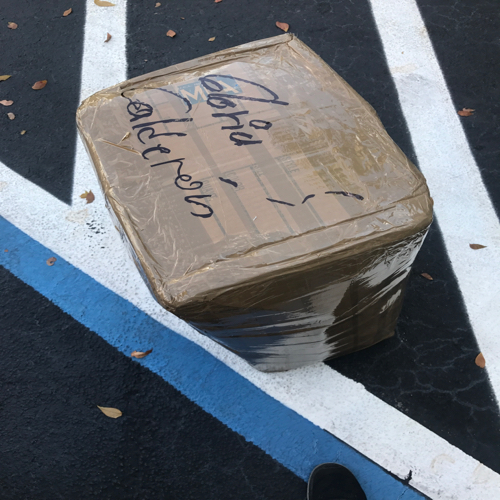 Gloria
Calderón